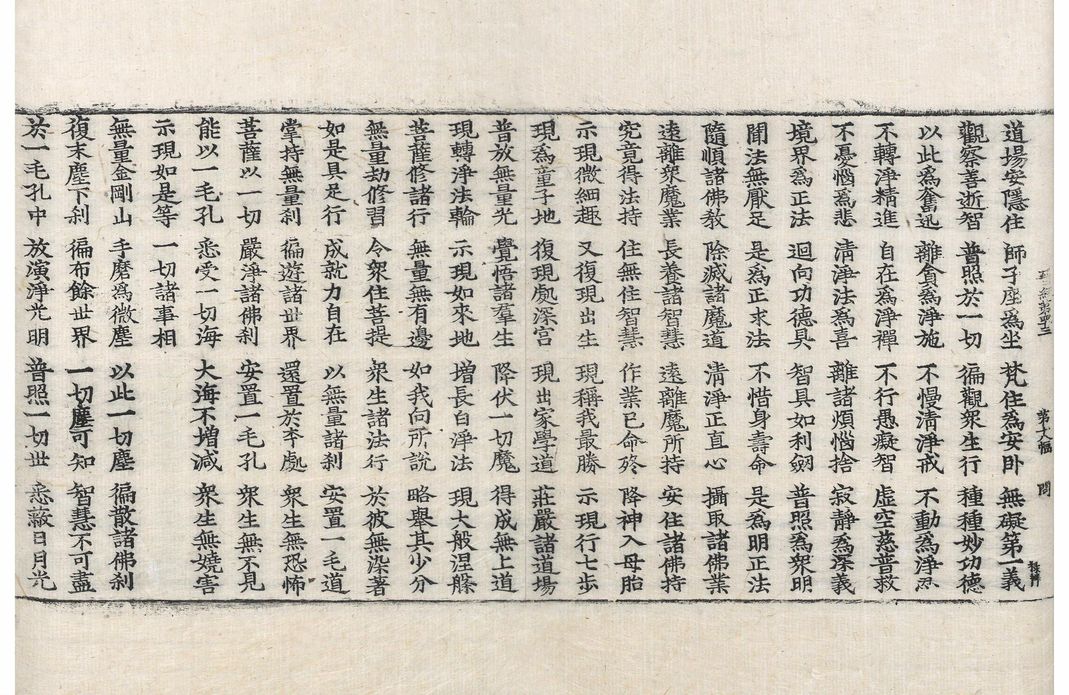 道場安隱住 師子座為坐 梵住為安卧 無礙第一義
觀察善逝智 普照於一切 徧觀衆生行 種種妙功德
以此為奮迅 離貪為淨施 不慢清淨戒 不動為淨忍
不轉淨精進 自在為淨禪 不行愚癡智 虛空慈普救
不憂惱為悲 清淨法為喜 離諸煩惱捨 寂靜為深義
境界為正法 迴向功德具 智具如利劒 普照為衆明
聞法無厭足 是為正求法 不惜身壽命 是為明正法
隨順諸佛教 除滅諸魔道 清淨正直心 攝取諸佛業
遠離衆魔業 長養諸智慧 遠離魔所持 安住諸佛持
究竟得法持 住無住智慧 作業已命終 降神入母胎
示現微細趣 又復現出生 現稱我最勝 示現行七步
現為童子地 復現處深宮 現出家學道 莊嚴諸道場
普放無量光 覺悟諸羣生 降伏一切魔 得成無上道
現轉淨法輪 示現如來地 增長白淨法 現大般涅槃
菩薩修諸行 無量無有邊 如我向所說 略舉其少分
無量劫修習 令衆住菩提 衆生諸法行 於彼無染著
如是具足行 成就力自在 以無量諸刹 安置一毛道
掌持無量刹 徧遊諸世界 還置於本處 衆生無恐怖
菩薩以一切 嚴淨諸佛刹 安置一毛孔 衆生無不見
能以一毛孔 悉受一切海 大海不增減 衆生無嬈害
示現如是等 一切諸事相
無量金剛山 手磨為微塵 以此一切塵 徧散諸佛刹
復末塵下刹 徧布餘世界 一切塵可知 智慧不可盡
於一毛孔中 放演淨光明 普照一切世 悉蔽日月光